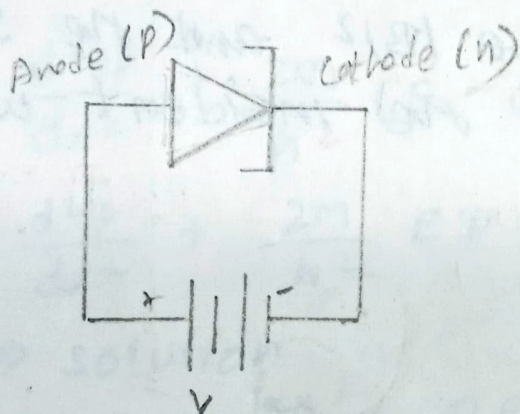 Anode (P)
Cathode (n)
+ -
V